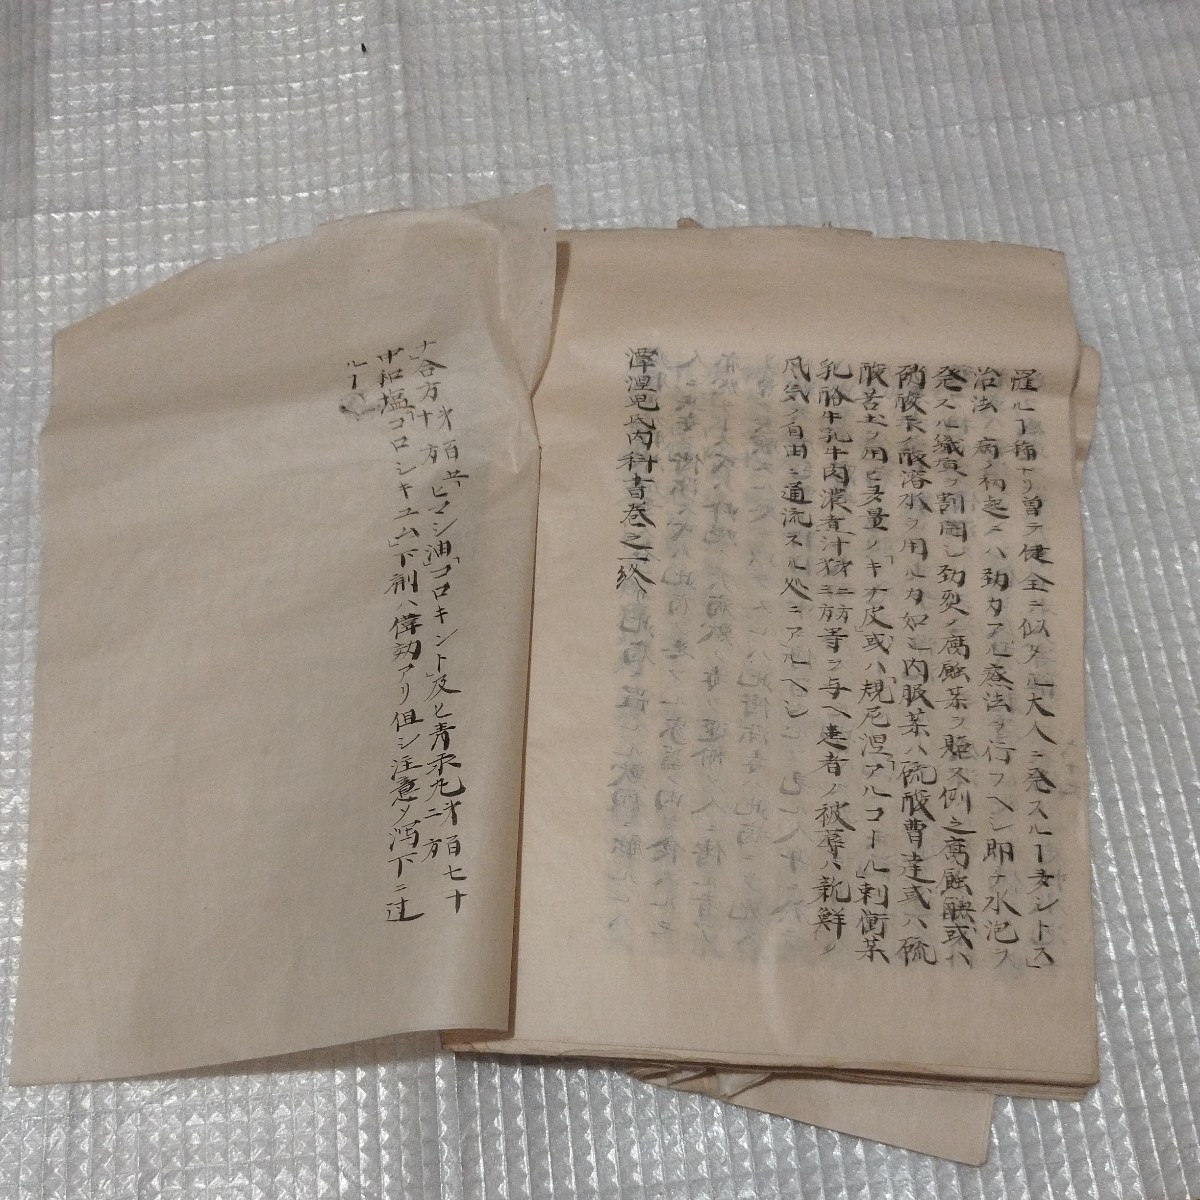 罹ルヿ稀ナリ曽テ健全ニ似タル大人ニ発スルヿ多シトス」
治法 病ノ初起ニハ効力アル療法ヲ行フヘシ即チ水泡ヲ
発スル織質ヲ割開シ効烈ノ腐蝕茶ヲ貼ス例之腐蝕 或ハ
硝酸汞ノ酸溶水ヲ用ルカ如シ内服茶ハ硫酸曹達或ハ硫
酸苦土ヲ用ヒ多量ノ「キナ皮」或ハ「規尼涅」「アルコール」刺衝茶
乳酪牛乳牛肉濃煮汁 等ヲ与ヘ患者ノ被蓐ハ新鮮ノ
風気ノ自由ニ通流スル処ニアルヘシ
潭涅児氏内科書巻之一終
合方 ヒマシ油「コロキント」及ヒ青汞丸 第二百七十
中和塩「コロシキユム」下剤ハ偉効アリ但シ注意ノ瀉下ニ過
ルヿ